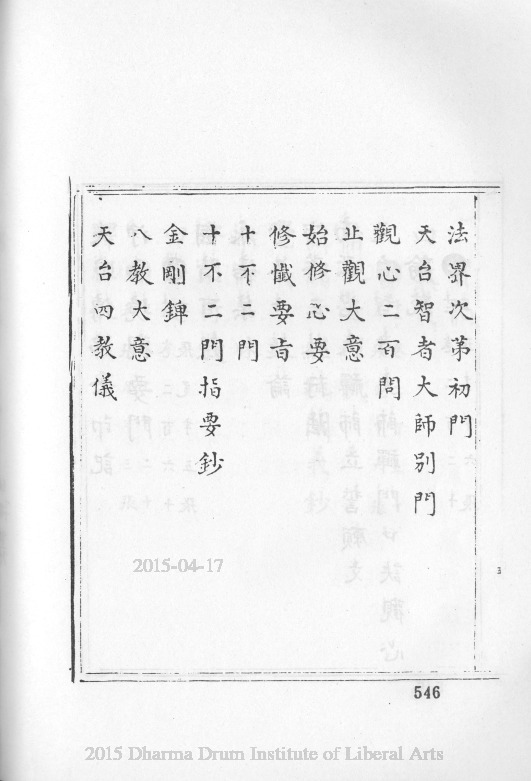 法界次第初門
天台智者大師別門
觀心二百問
止觀大意
始修心要
修懺要旨
十不二門
十不二門指要鈔
金剛錍
八教大意
天台四教儀
2015-04-17
546
2015 Dharma Drum Institute of Liberal Arts